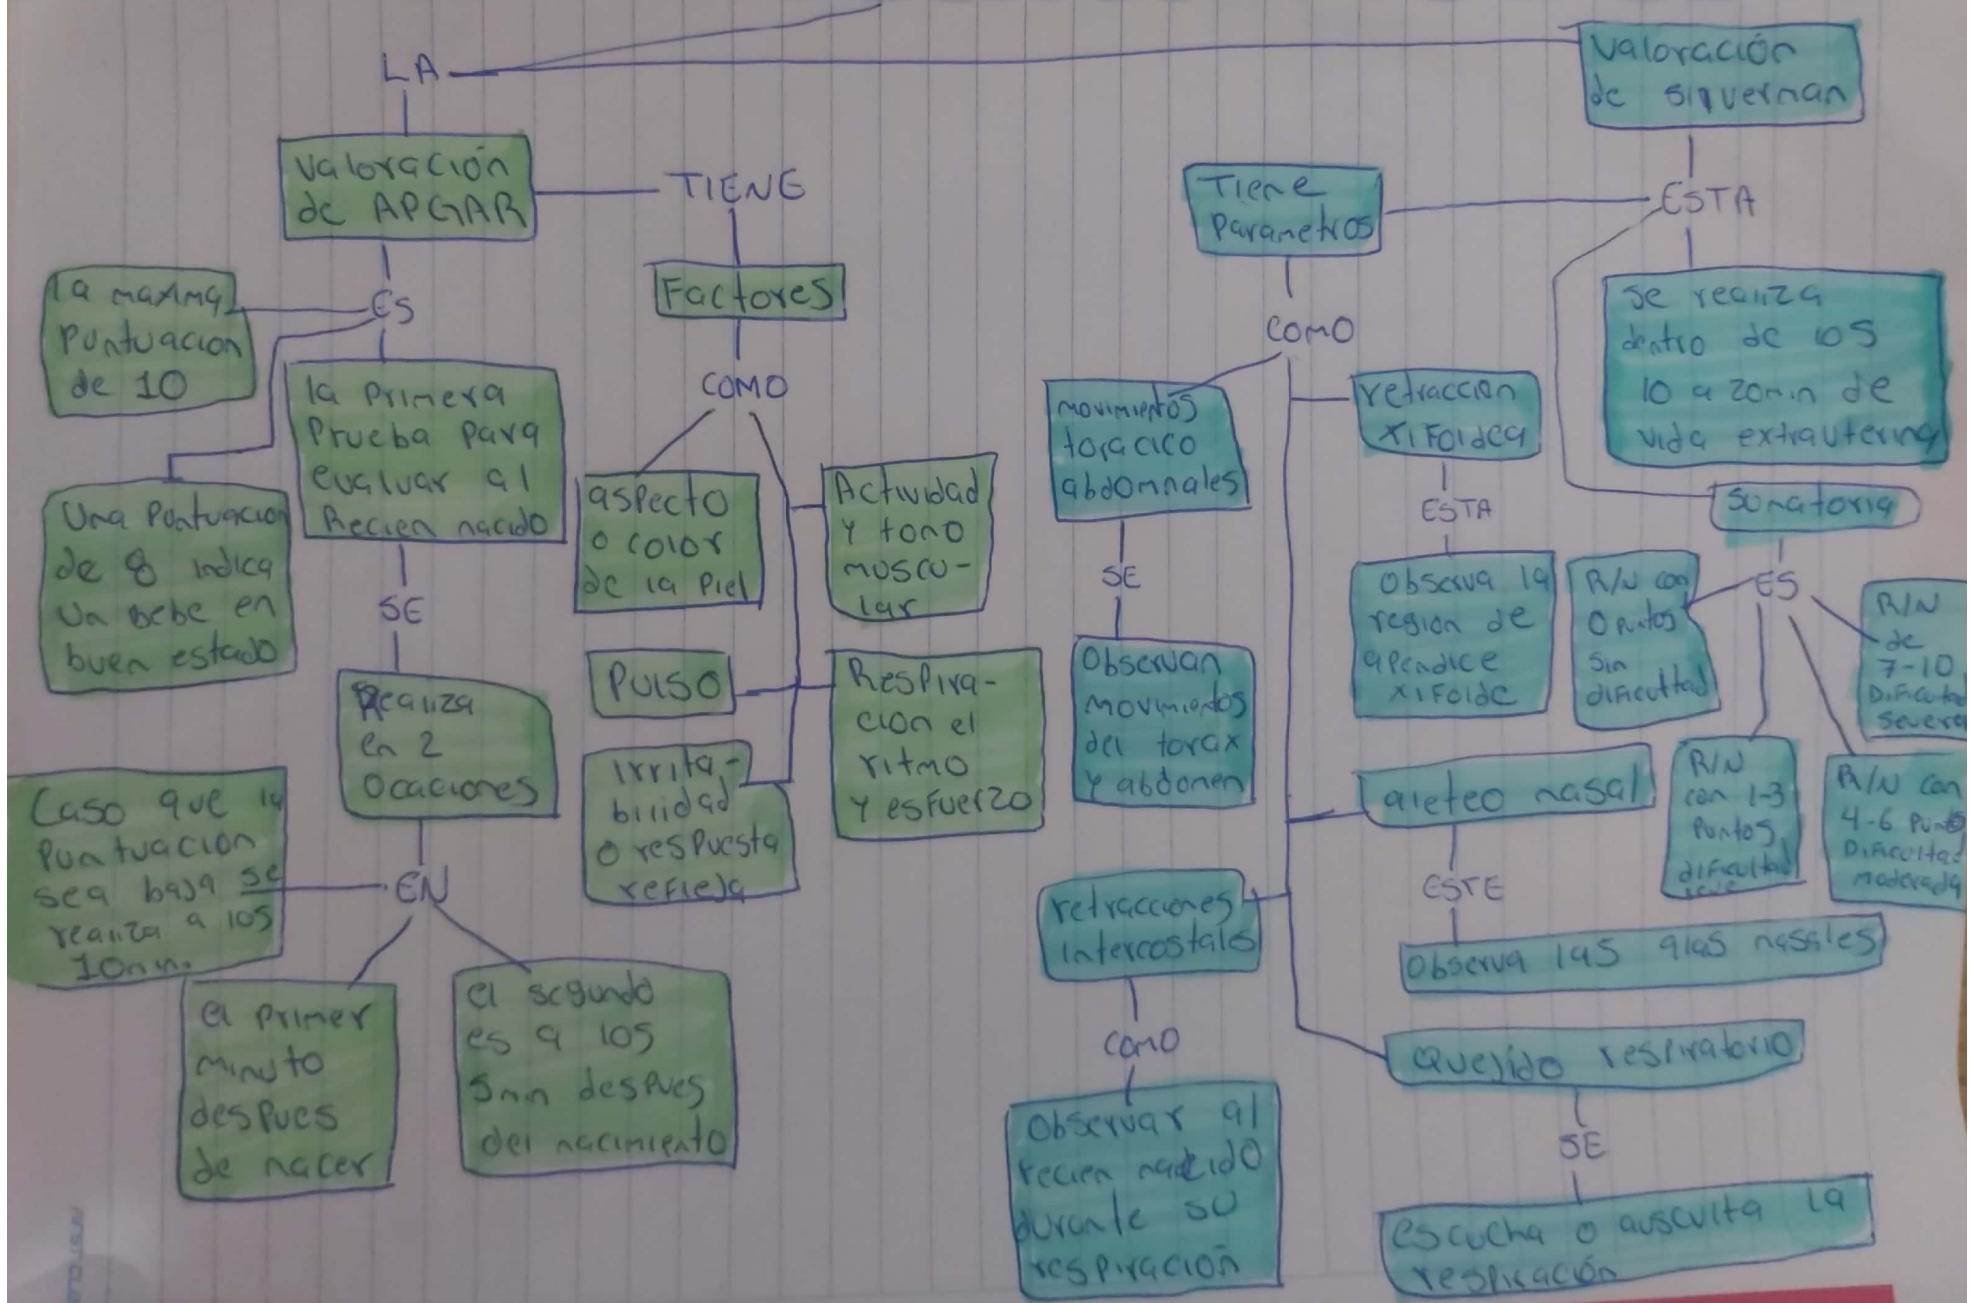 LA
Valoración
de APGAR
TIENE
Factores
COMO
aspecto
o color
de la Piel
Actividad
y tono
muscu-
lar
Pulso
Respira-
cion el
ritmo
y esfuerzo
irrita-
bilidad
o respuesta
refleja
ES
la maxima
Puntuacion
de 10
Una Pontuacion
de 8 indica
Un bebe en
buen estado
la Primera
Prueba para
evaluar al
Recien nacido
SE
Realiza
en 2
Ocaciones
EN
Caso que la
Puntuacion
sea baja se
realiza a los
10min.
el primer
minuto
despues
de nacer
el segundo
es a los
5min despues
del nacimiento
Valoración
de silverman
ESTA
Tiene
Parametros
COMO
movimientos
toracico
abdominales
SE
Observan
movimientos
del torax
y abdomen
retraccion
xifoidea
ESTA
Observa la
region de
apendice
xifoide
aleteo nasal
ESTE
Observa las alas nasales
retracciones
intercostales
COMO
Observar al
recien nacido
durante su
respiración
Quejido respiratorio
SE
escucha o ausculta la
respiración
se realiza
dentro de los
10 a 20min de
vida extrauterina
sumatoria
ES
R/N con
0 puntos
sin
dificultad
R/N
con 1-3
Puntos
dificultad
leve
R/N con
4-6 Puntos
Dificultad
moderada
R/N
de
7-10
Dificultad
severa